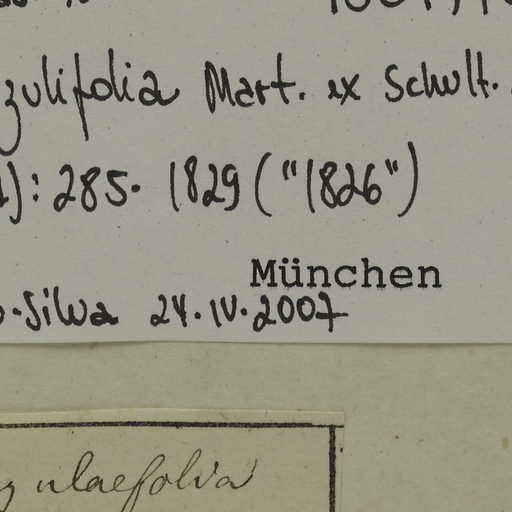 zulifolia Mart. ex Schult.
1): 285. 1829 ("1826")
München
o-Silva 24.IV.2007
gulaefolia